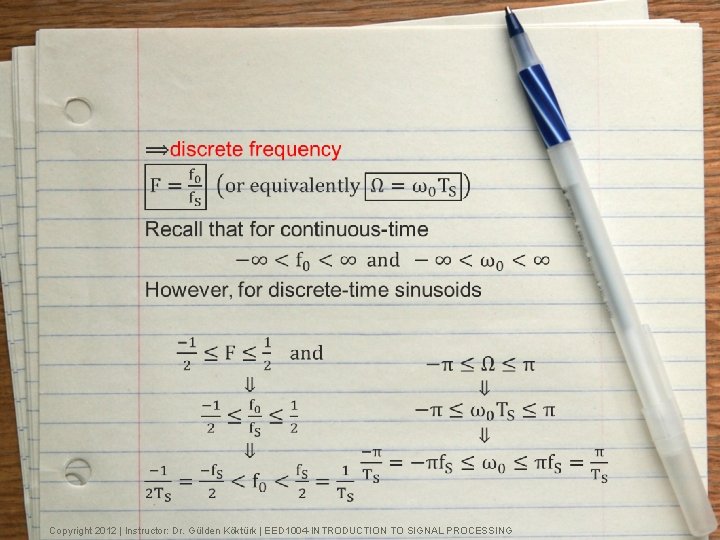 ⟹discrete frequency
F = f₀/f_S (or equivalently Ω = ω₀T_S)
Recall that for continuous-time
−∞ < f₀ < ∞ and − ∞ < ω₀ < ∞
However, for discrete-time sinusoids
−1/2 ≤ F ≤ 1/2 and −π ≤ Ω ≤ π
⇓ ⇓
−1/2 ≤ f₀/f_S ≤ 1/2 −π ≤ ω₀T_S ≤ π
⇓ ⇓
−1/2T_S = −f_S/2 < f₀ < f_S/2 = 1/T_S −π/T_S = −πf_S ≤ ω₀ ≤ πf_S = π/T_S
Copyright 2012 | Instructor: Dr. Gülden Köktürk | EED1004-INTRODUCTION TO SIGNAL PROCESSING